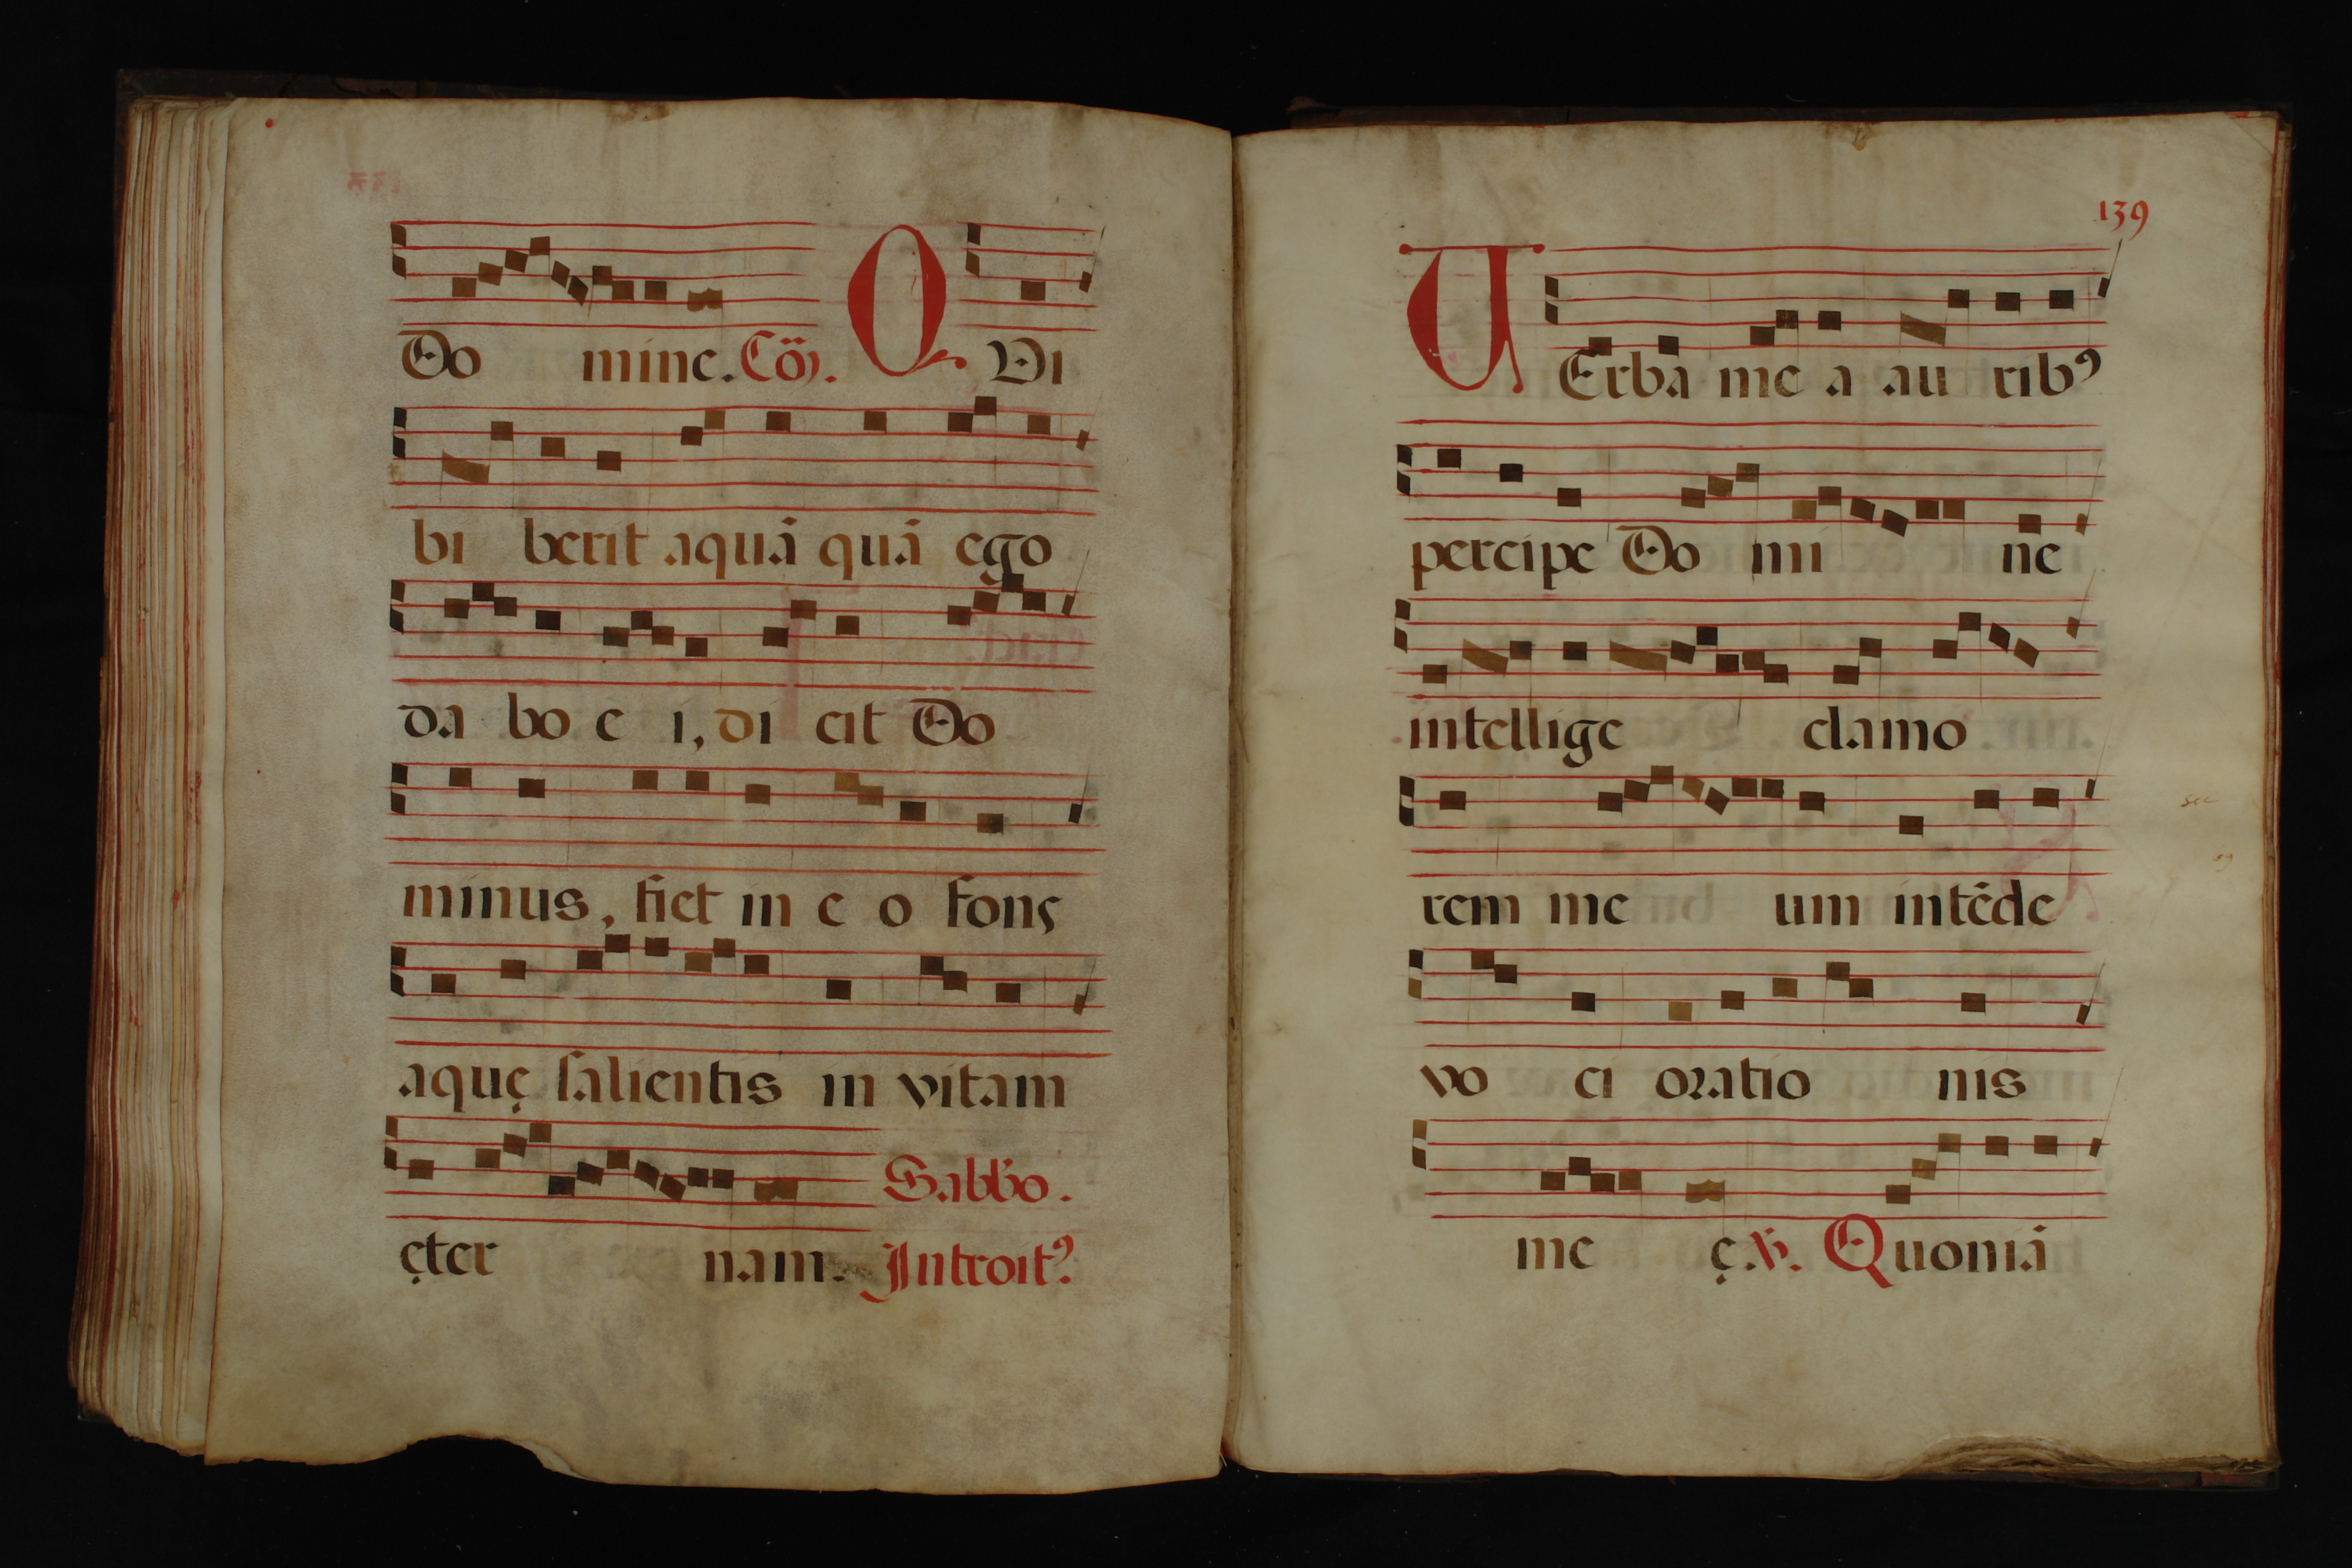 Do mine. Cõ. QVi
bi berit aquã quã ego
da bo e i, di cit Do
minus, fiet in e o fons
aquę salientis in vitam
Sabbo.
ęter nam. Introit⁹
139
VErba me a au rib⁹
percipe Do mi ne
intellige clamo
rem me um intẽde
vo ci oratio nis
me ę. V. Quoniã